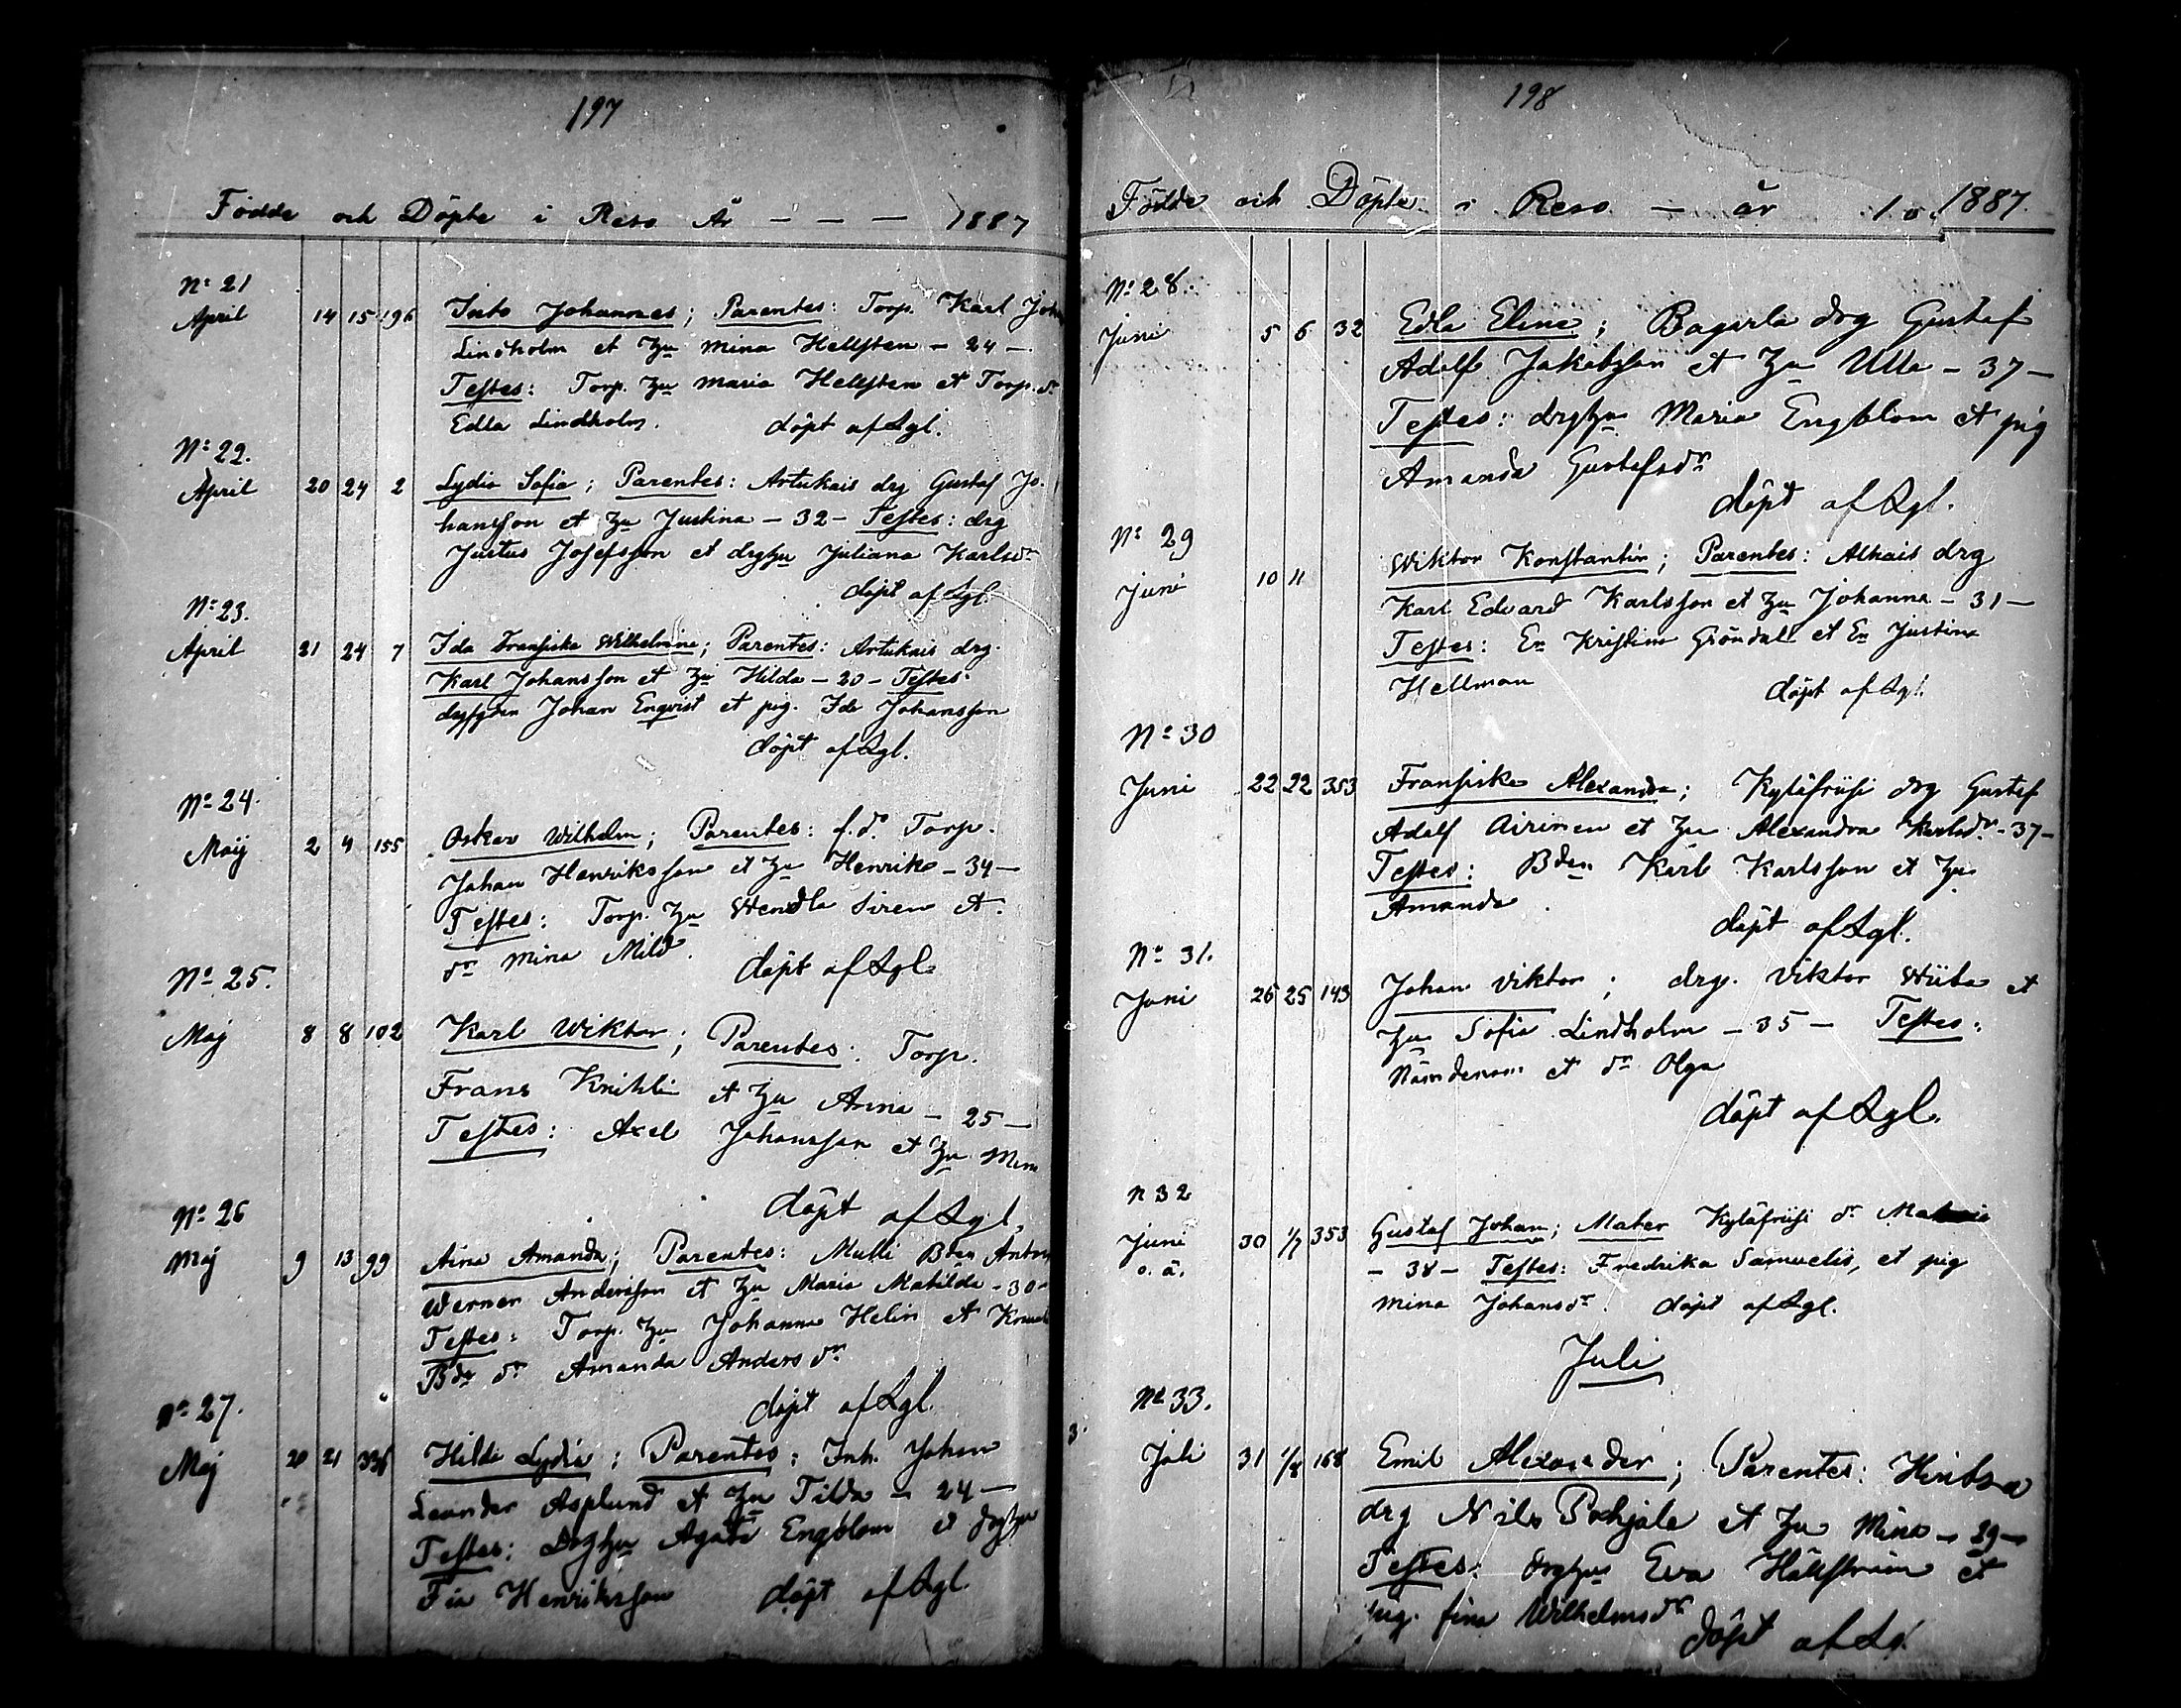 197
Födde och Döpte i Reso År - - - 1887
No 21
April 14 15 196 Johannes; Parentes: Torp. Karl Joh
Lindholm et hu Mina Hellsten - 24 -
Testes: Torp. hu Maria Hellsten et Torp. dr
Edla Lindholm. döpt af Lgl.
No 22.
April 20 24 2 Lydia Sofia; Parentes: Artukais drg Gustaf Jo-
hansson et hu Justina - 32 - Testes: drg
Justus Josefsson et drghu Juliana Karlsdr
döpt af Lgl.
No 23.
April 21 24 7 Ida Fransiska Wilhelmina; Parentes: Artukais drg.
Karl Johansson et hu Hilda - 20 - Testes:
Johan Enqvist et pig. Ida Johansson
döpt af Lgl.
No 24.
Maij 2 4 155 Oskar Wilhelm; Parentes: f.d. Torp.
Johan Henriksson et hu Henrika - 34 -
Testes: Torp. hu Wendla Siren et
dr Mina Mild. döpt af Lgl.
No 25.
Maj 8 8 102 Karl Wiktor; Parentes: Torp.
Frans et hu Anna - 25 -
Testes: Axel Johansson et hu Mina
döpt af Lgl.
No 26
Maj 9 13 99 Aina Amanda; Parentes: Mulli Bden Anton
Werner Andersson et hu Maria Matilda - 30 -
Testes: Torp. hu Johanna Helin et
Bdr dr Amanda Andersdr
döpt af Lgl.
No 27.
Maj 20 21 336 Hilda Lydia; Parentes: Inh. Johan
Leander Asplund et hu Tilda - 24 -
Testes: Drghu Agata Engblom et drghu
Fia Henriksson döpt af Lgl.
198
Födde och Döpte i Reso - år 1887.
No 28.
Juni 5 6 32 Edla Elina; Bagarla drg Gustaf
Adolf Jakobsson et hu Ulla - 37 -
Testes: drghu Maria Engblom et pig
Amanda Gustafsdr
döpt af Lgl.
No 29
Juni 10 11 Wiktor Konstantin; Parentes: Alhais drg
Karl Edvard Karlsson et hu Johanna - 31 -
Testes: En Kristina Gröndall et En Justina
Hellman döpt af Lgl.
No 30
Juni 22 22 353 Fransiska Alexandra; Kyläfriisi drg Gustaf
Adolf Airinen et hu Alexandra Karlsdr - 37 -
Testes: Bden Karl Karlsson et hu
Amanda.
döpt af Lgl.
No 31.
Juni 25 25 143 Johan Viktor; drg. Viktor Wiita et
hu Sofia Lindholm - 35 - Testes:
Nämdeman et dr Olga
döpt af Lgl.
N 32
Juni 30 1/7 353 Gustaf Johan; Mater Kyläfriisi dr
o. ä. - 38 - Testes: Fredrika Samuelis, et pig
Mina Johansdr. döpt af Lgl.
Juli
No 33.
Juli 31 1/8 168 Emil Alexander; Parentes: Hintsa
drg Nils Pohjala et hu Mina - 29 -
Testes: drghu Eva Hällström et
pig. Fina Wilhelmsdr
döpt af Lgl.